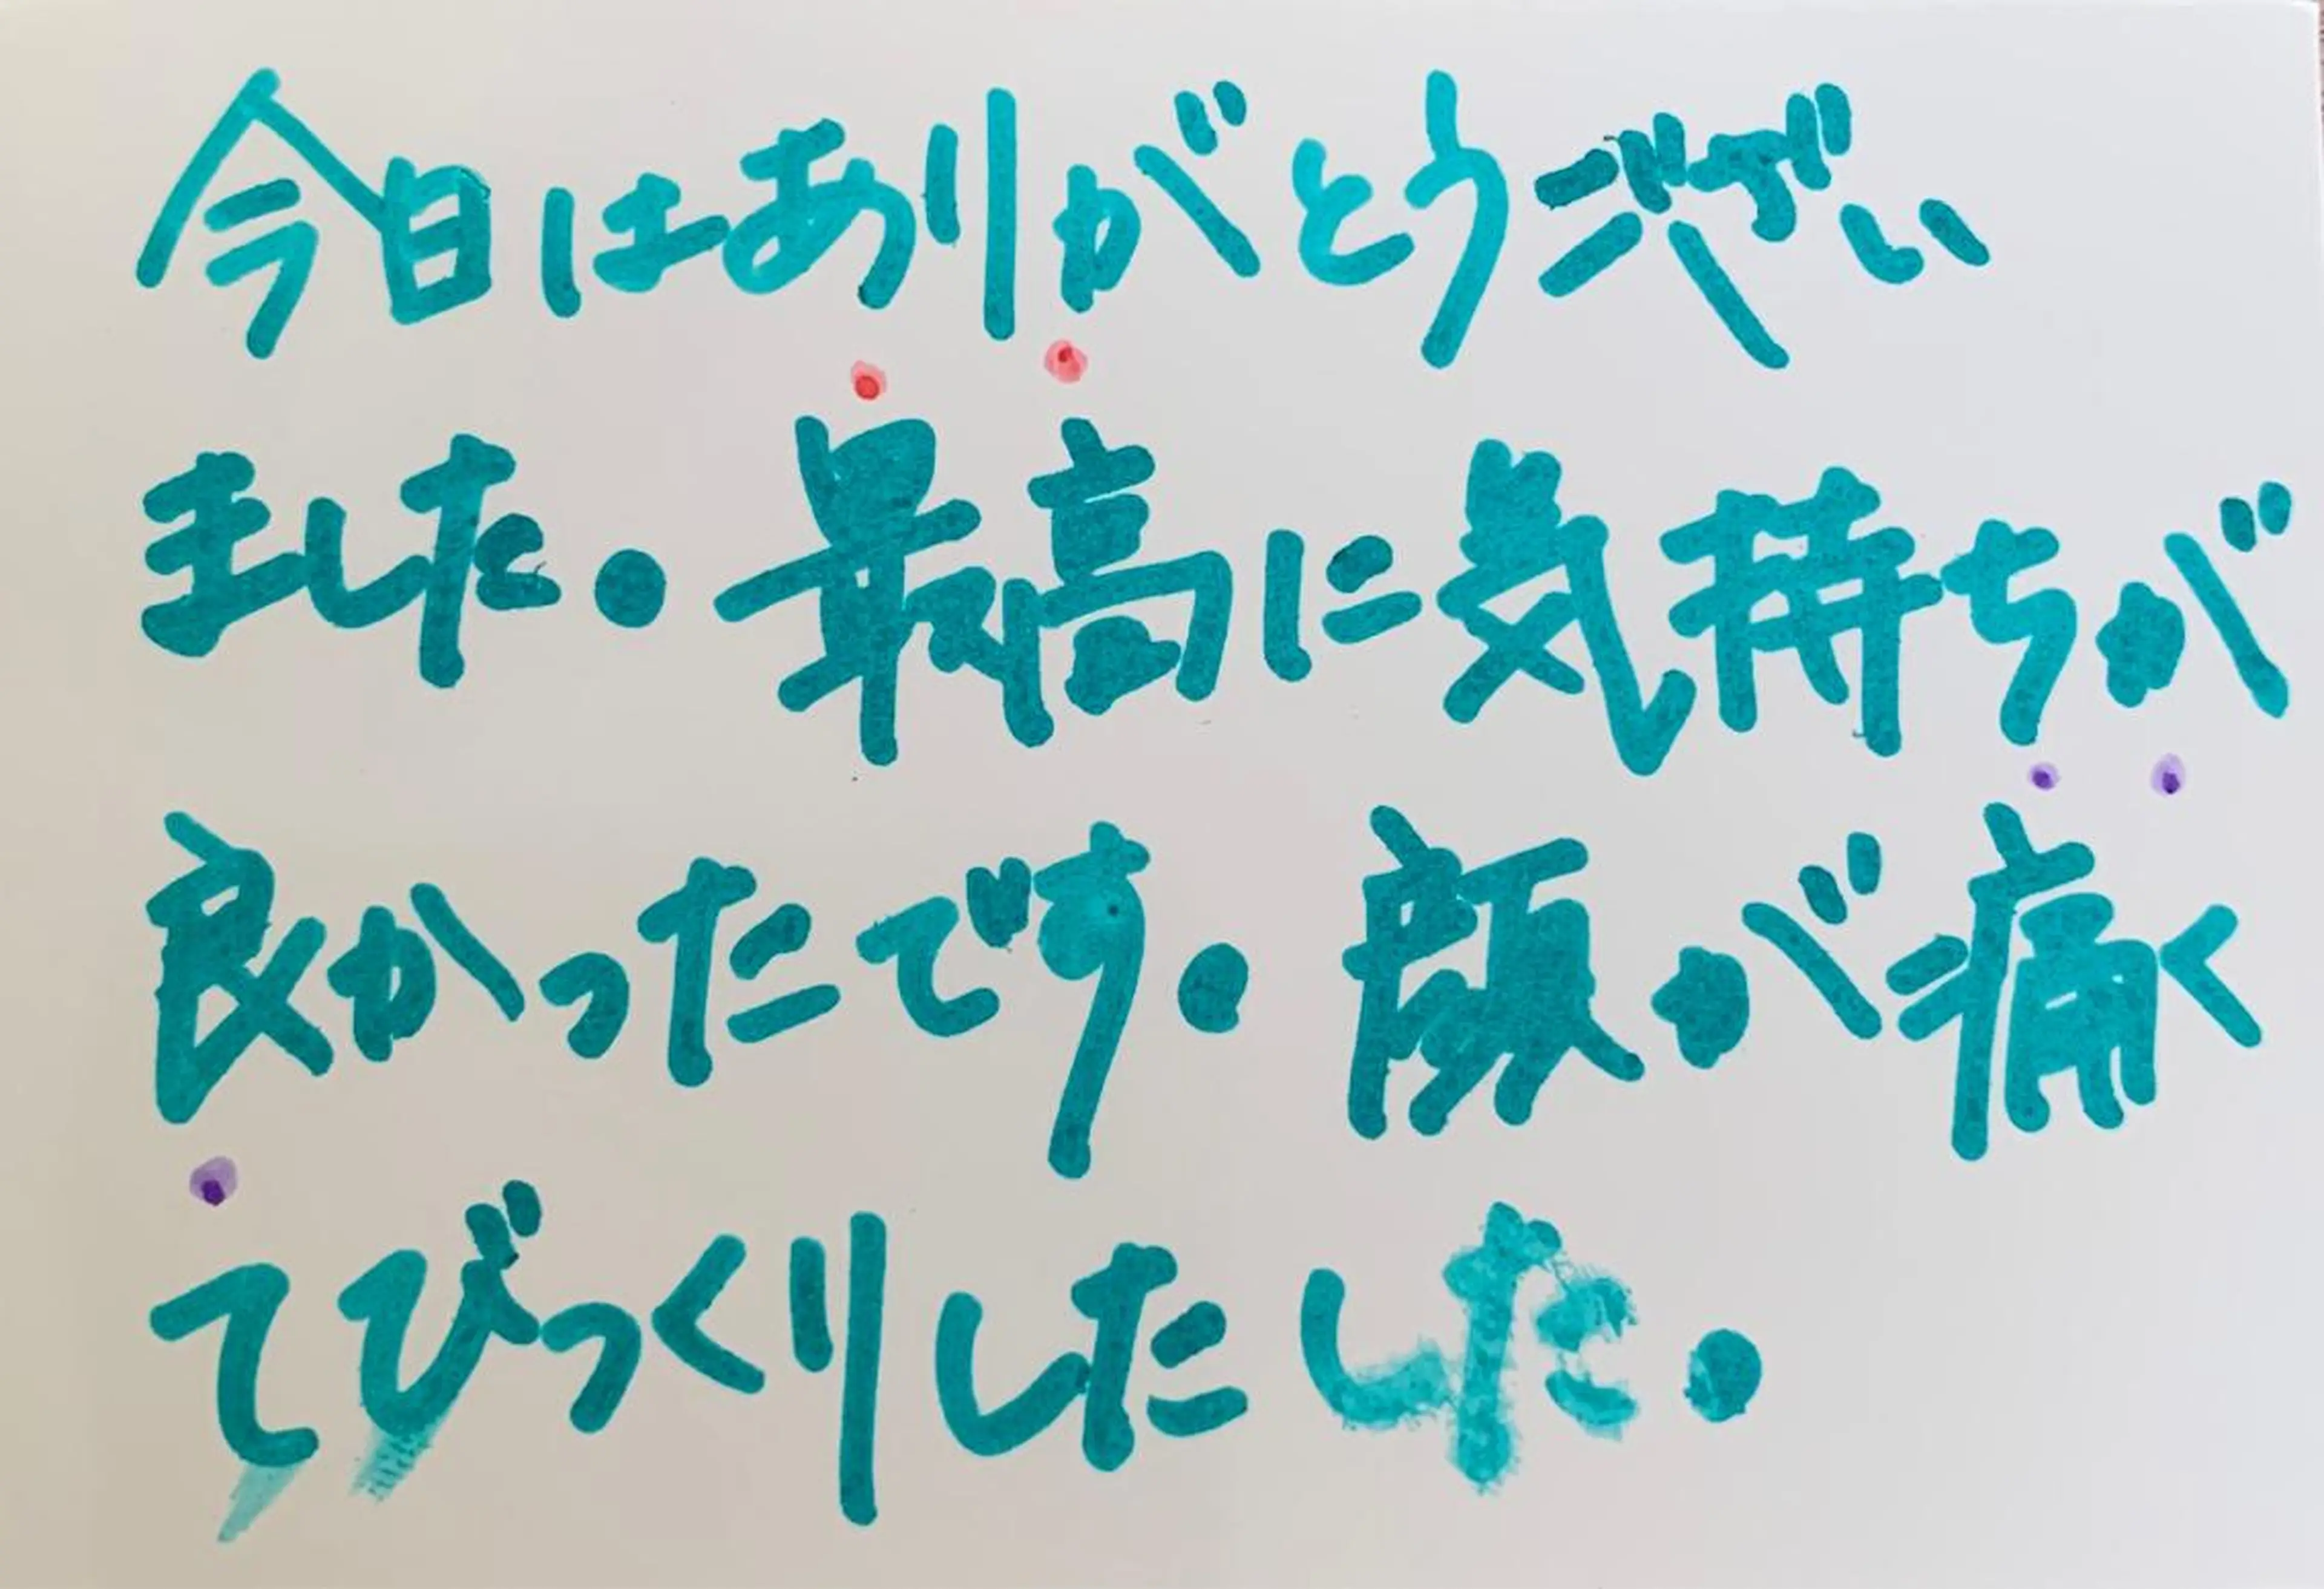 今日はありがとうござい
ました。最高に気持ちが
良かったです。顔が痛く
てびっくりしたした。